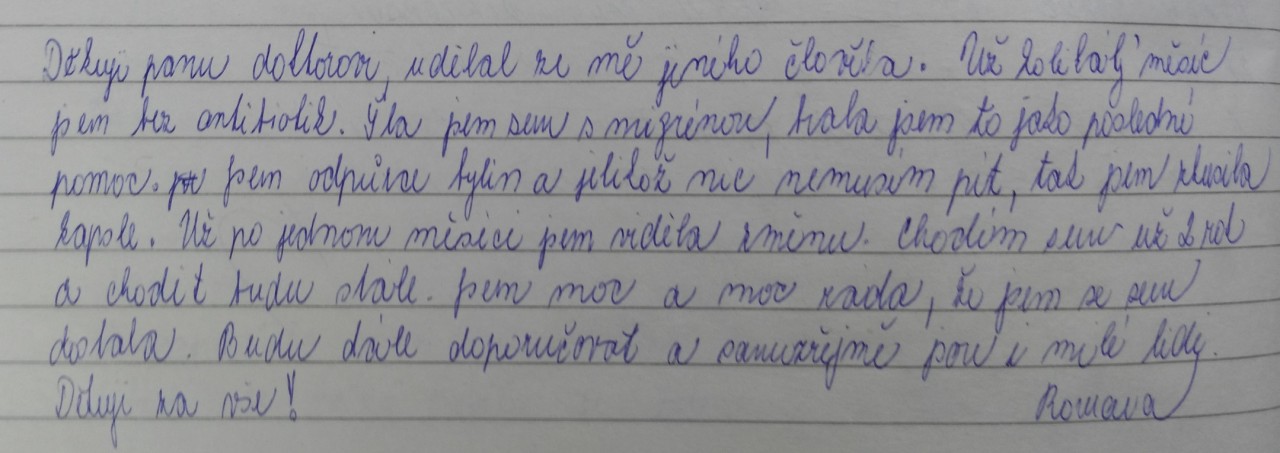 Děkuji panu doktorovi, udělal ze mě jiného člověka. Už kolikátý měsíc
jsem bez antibiotik. Šla jsem sem s migrénou, brala jsem to jako poslední
pomoc. jsem odpůrce bylin a jelikož nic nemusím pít, tak jsem zkusila
kapole. Už po jednom měsíci jsem viděla změnu. Chodím sem už 2 rok
a chodit budu stále. jsem moc a moc ráda, že jsem se sem
dostala. Budu dále doporučovat a samozřejmě jsou i milé lidi.
Děkuji za vše! Romana